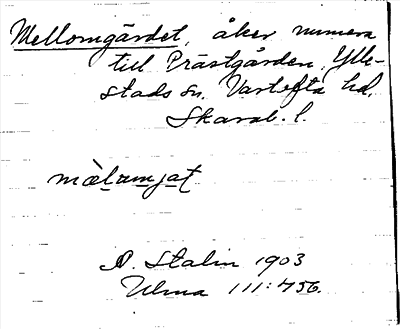 Mellomgärdet, åker numera
till Prästgården, Ylle-
stads sn. Vartofta hd.
Skarab. l.
mælamjat
A. Stalin 1903
Ulma 111:456.